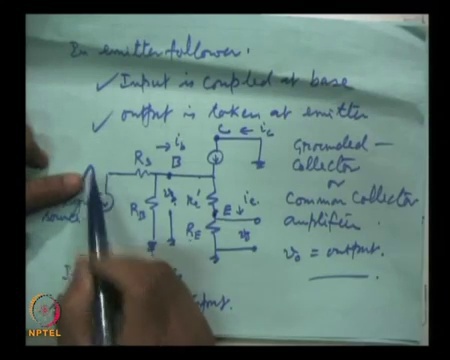 In emitter follower.
✓ Input is coupled at base
✓ output is taken at emitter
C ← ic
→ ib
RS
B
RB
re'
E ie
RE
vo
Grounded-
Collector
or
Common Collector
amplifier.
vo = output.
NPTEL